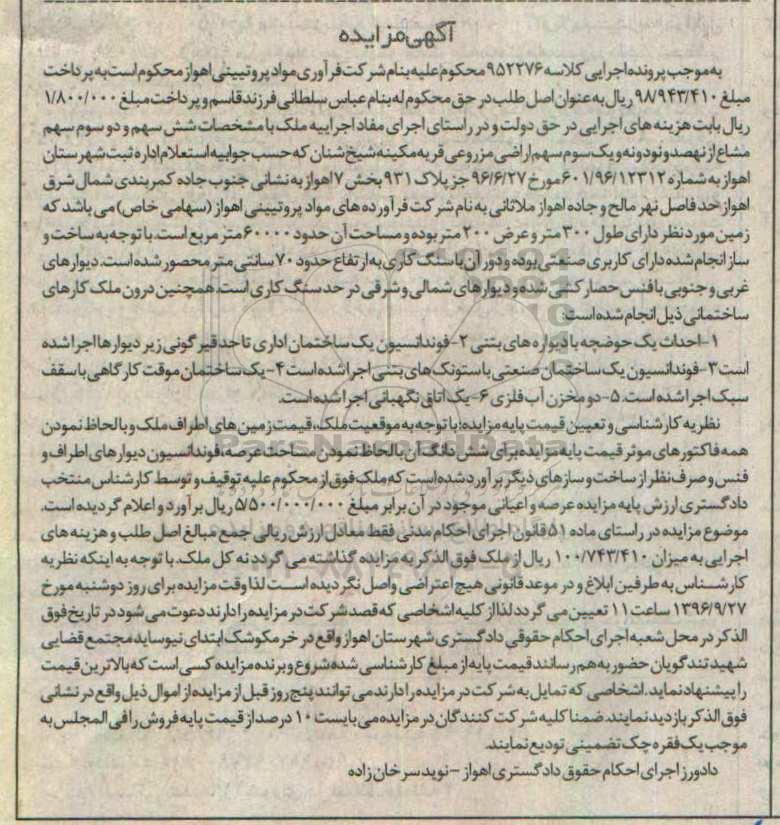 آگهی مزایده
به موجب پرونده اجرایی کلاسه ۹۵۲۲۷۶ محکوم علیه بنام شرکت فرآوری مواد پروتیینی اهواز محکوم است به پرداخت
مبلغ ۹۸/۹۴۳/۴۱۰ ریال به عنوان اصل طلب در حق محکوم له بنام عباس سلطانی فرزند قاسم و پرداخت مبلغ ۱/۸۰۰/۰۰۰
ریال بابت هزینه های اجرایی در حق دولت و در راستای اجرای مفاد اجراییه ملک با مشخصات شش سهم و دو سوم سهم
مشاع از نهصد و نود و نه و یک سوم سهم اراضی مزروعی قریه مکینه شیخ شنان که حسب جوابیه استعلام اداره ثبت شهرستان
اهواز به شماره ۶۰۱/۹۶/۱۲۳۱۲ مورخ ۹۶/۶/۲۷ جز پلاک ۹۳۱ بخش ۷ اهواز به نشانی جنوب جاده کمربندی شمال شرق
اهواز حد فاصل نهر مالح و جاده اهواز ملاثانی به نام شرکت فرآورده های مواد پروتیینی اهواز (سهامی خاص) می باشد که
زمین مورد نظر دارای طول ۳۰۰ متر و عرض ۲۰۰ متر بوده و مساحت آن حدود ۶۰۰۰۰ متر مربع است. با توجه به ساخت و
ساز انجام شده دارای کاربری صنعتی بوده و دور آن با سنگ کاری به ارتفاع حدود ۷۰ سانتی متر محصور شده است. دیوارهای
غربی و جنوبی با فنس حصار کشی شده و دیوارهای شمالی و شرقی در حد سنگ کاری است. همچنین درون ملک کارهای
ساختمانی ذیل انجام شده است:
۱- احداث یک حوضچه با دیواره های بتنی ۲- فوندانسیون یک ساختمان اداری تا حد قیر گونی زیر دیوارها اجرا شده
است ۳- فوندانسیون یک ساختمان صنعتی با ستونک های بتنی اجرا شده است ۴- یک ساختمان موقت کارگاهی با سقف
سبک اجرا شده است. ۵- دو مخزن آب فلزی ۶- یک اتاق نگهبانی اجرا شده است.
نظریه کارشناسی و تعیین قیمت پایه مزایده: با توجه به موقعیت ملک، قیمت زمین های اطراف ملک و با لحاظ نمودن
همه فاکتورهای موثر قیمت پایه مزایده برای شش دانگ آن با لحاظ نمودن مساحت عرصه، فوندانسیون دیوارهای اطراف و
فنس و صرف نظر از ساخت و سازهای دیگر برآورد شده است که ملک فوق از محکوم علیه توقیف و توسط کارشناس منتخب
دادگستری ارزش پایه مزایده عرصه و اعیانی موجود در آن برابر مبلغ ۵/۵۰۰/۰۰۰/۰۰۰ ریال برآورد و اعلام گردیده است.
موضوع مزایده در راستای ماده ۵۱ قانون اجرای احکام مدنی فقط معادل ارزش ریالی جمع مبالغ اصل طلب و هزینه های
اجرایی به میزان ۱۰۰/۷۴۳/۴۱۰ ریال از ملک فوق الذکر به مزایده گذاشته می گردد نه کل ملک. با توجه به اینکه نظریه
کارشناس به طرفین ابلاغ و در موعد قانونی هیچ اعتراضی واصل نگردیده است لذا وقت مزایده برای روز دوشنبه مورخ
۱۳۹۶/۹/۲۷ ساعت ۱۱ تعیین می گردد لذا از کلیه اشخاصی که قصد شرکت در مزایده را دارند دعوت می شود در تاریخ فوق
الذکر در محل شعبه اجرای احکام حقوقی دادگستری شهرستان اهواز واقع در خرمکوشک ابتدای نیوساید مجتمع قضایی
شهید تندگویان حضور به هم رسانند قیمت پایه از مبلغ کارشناسی شده شروع و برنده مزایده کسی است که بالاترین قیمت
را پیشنهاد نماید. اشخاصی که تمایل به شرکت در مزایده را دارند می توانند پنج روز قبل از مزایده از اموال ذیل واقع در نشانی
فوق الذکر بازدید نمایند. ضمنا کلیه شرکت کنندگان در مزایده می بایست ۱۰ درصد از قیمت پایه فروش را فی المجلس به
موجب یک فقره چک تضمینی تودیع نمایند.
دادورز اجرای احکام حقوق دادگستری اهواز - نوید سرخان زاده
ParsNamadData